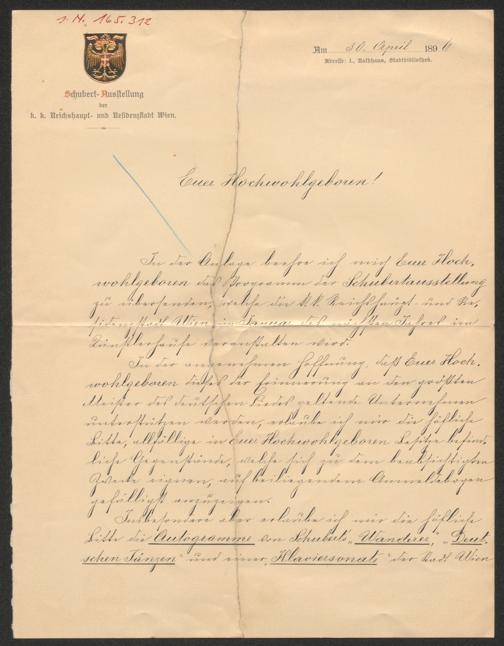 I. N. 165.312
Am 30. April 1896
Adresse: I., Rathhaus, Stadtbibliothek.
Schubert-Ausstellung
der
k. k. Reichshaupt- und Residenzstadt Wien.
Euer Hochwohlgeboren!
In der Anlage beehre ich mich Euer Hoch-
wohlgeboren das Programm der Schubertausstellung
zu übersenden, welche die k. k. Reichshaupt- und Re-
sidenzstadt Wien im Januar des nächsten Jahres im
Künstlerhause veranstalten wird.
In der angenehmen Hoffnung, daß Euer Hoch-
wohlgeboren dieses der Erinnerung an den größten
Meister des deutschen Liedes geltende Unternehmen
unterstützen werden, erlaube ich mir die höfliche
Bitte, allfällige in Euer Hochwohlgeboren Besitze befind-
liche Gegenstände, welche sich zu dem beabsichtigten
Zwecke eignen, auf beiliegendem Anmeldebogen
gefälligst anzuzeigen.
Insbesondere aber erlaube ich mir die höfliche
Bitte die Autogramme von Schuberts „Wanderer“, „Deut-
schen Tänzen“ und einer „Klaviersonate“ der Stadt Wien